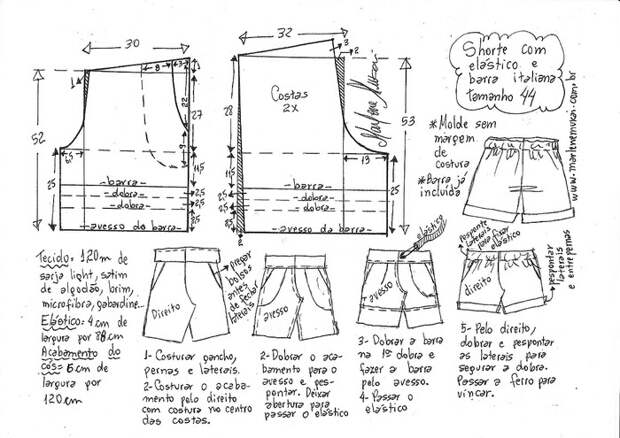 30
32
8
3
3
2
1
1
Costas
2X
Marlene Mukai
52
27
22
9
28
53
2,5
11,5
11,5
13
25
25
barra
dobra
dobra
avesso da barra
2,5
2,5
barra
dobra
dobra
avesso da barra
2
Shorte com
elástico e
barra italiana
tamanho 44
www.marlenemukai.com.br
*Molde sem
margem
de
costura
*Barra já
incluída
Tecido: 1,20m de
sarja light, cetim
de algodão, brim,
microfibra, gabardine...
Elástico: 4 cm de
largura por 88 cm
Acabamento do
cós = 6 cm de
largura por
120 cm
Direito
Pregar
bolsos
antes
de fechar
laterais
avesso
elástico
avesso
Pespontar
laterais
para fixar
elástico
direito
pespontar
laterais
e entrepernas
1- Costurar gancho,
pernas e laterais.
2- Costurar o acaba-
mento pelo direito
com costura no centro
das costas.
2- Dobrar o aca-
bamento para o
avesso e pes-
pontar. Deixar
abertura para
passar o elástico
3- Dobrar a barra
na 1ª dobra e
fazer a barra
pelo avesso.
4- Passar o
elástico
5- Pelo direito,
dobrar e pespontar
as laterais para
segurar a dobra.
Passar a ferro para
vincar.